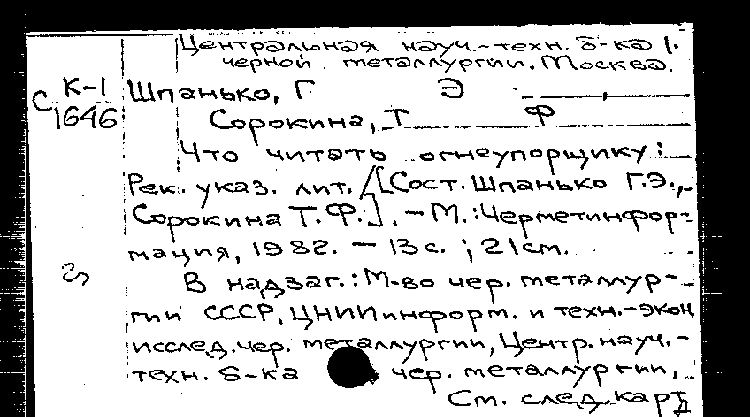 Центральная науч.-техн. б-ка
черной металлургии. Москва.
К-1
С 1646
Шпанько, Г Э
Сорокина, Т Ф
Что читать огнеупорщику:
Рек. указ. лит. /[Сост. Шпанько Г.Э.,
Сорокина Т.Ф.]. - М.: Черметинфор-
мация, 1982. - 13 с. ; 21 см.
В надзаг.: М-во чер. металлур-
гии СССР, ЦНИИинформ. и техн.-экон
исслед. чер. металлургии, Центр. науч.-
техн. б-ка чер. металлургии.
См. след. карт